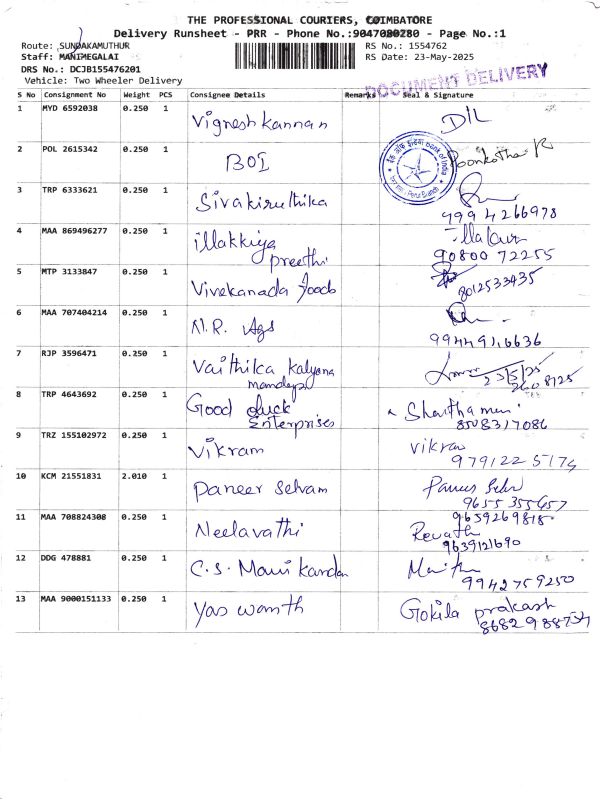 THE PROFESSIONAL COURIERS, COIMBATORE
Delivery Runsheet - PRR - Phone No.:9047080280 - Page No.:1
Route: SUNDAKAMUTHUR
RS No.: 1554762
Staff: MANIMEGALAI
RS Date: 23-May-2025
DRS No.: DCJB155476201
Vehicle: Two Wheeler Delivery
DOCUMENT DELIVERY
S No Consignment No Weight PCS Consignee Details Remarks Seal & Signature
1 MYD 6592038 0.250 1 Vignesh Kannan DIL
2 POL 2615342 0.250 1 BOI Poonkothai R
3 TRP 6333621 0.250 1 Sivakiruthika
9994266978
4 MAA 869496277 0.250 1 illakkiya
preethi
90800 72255
5 MTP 3133847 0.250 1 Vivekanada foods
8012533435
6 MAA 707404214 0.250 1 N.R. Ags
9944946636
7 RJP 3596471 0.250 1 Vaithika Kalyana
mandapa
23/5/25
8 TRP 4643692 0.250 1 Good Luck
Enterprises
9 TRZ 155102972 0.250 1 Vikram
10 KCM 21551831 2.010 1 Paneer Selvam
9655355657
11 MAA 708824308 0.250 1 Neelavathi
9659269818
Revathi
9639121690
12 DDG 478881 0.250 1 C.S. Manikandan
9942759250
13 MAA 9000151133 0.250 1 Yaswanth Gokila prakash